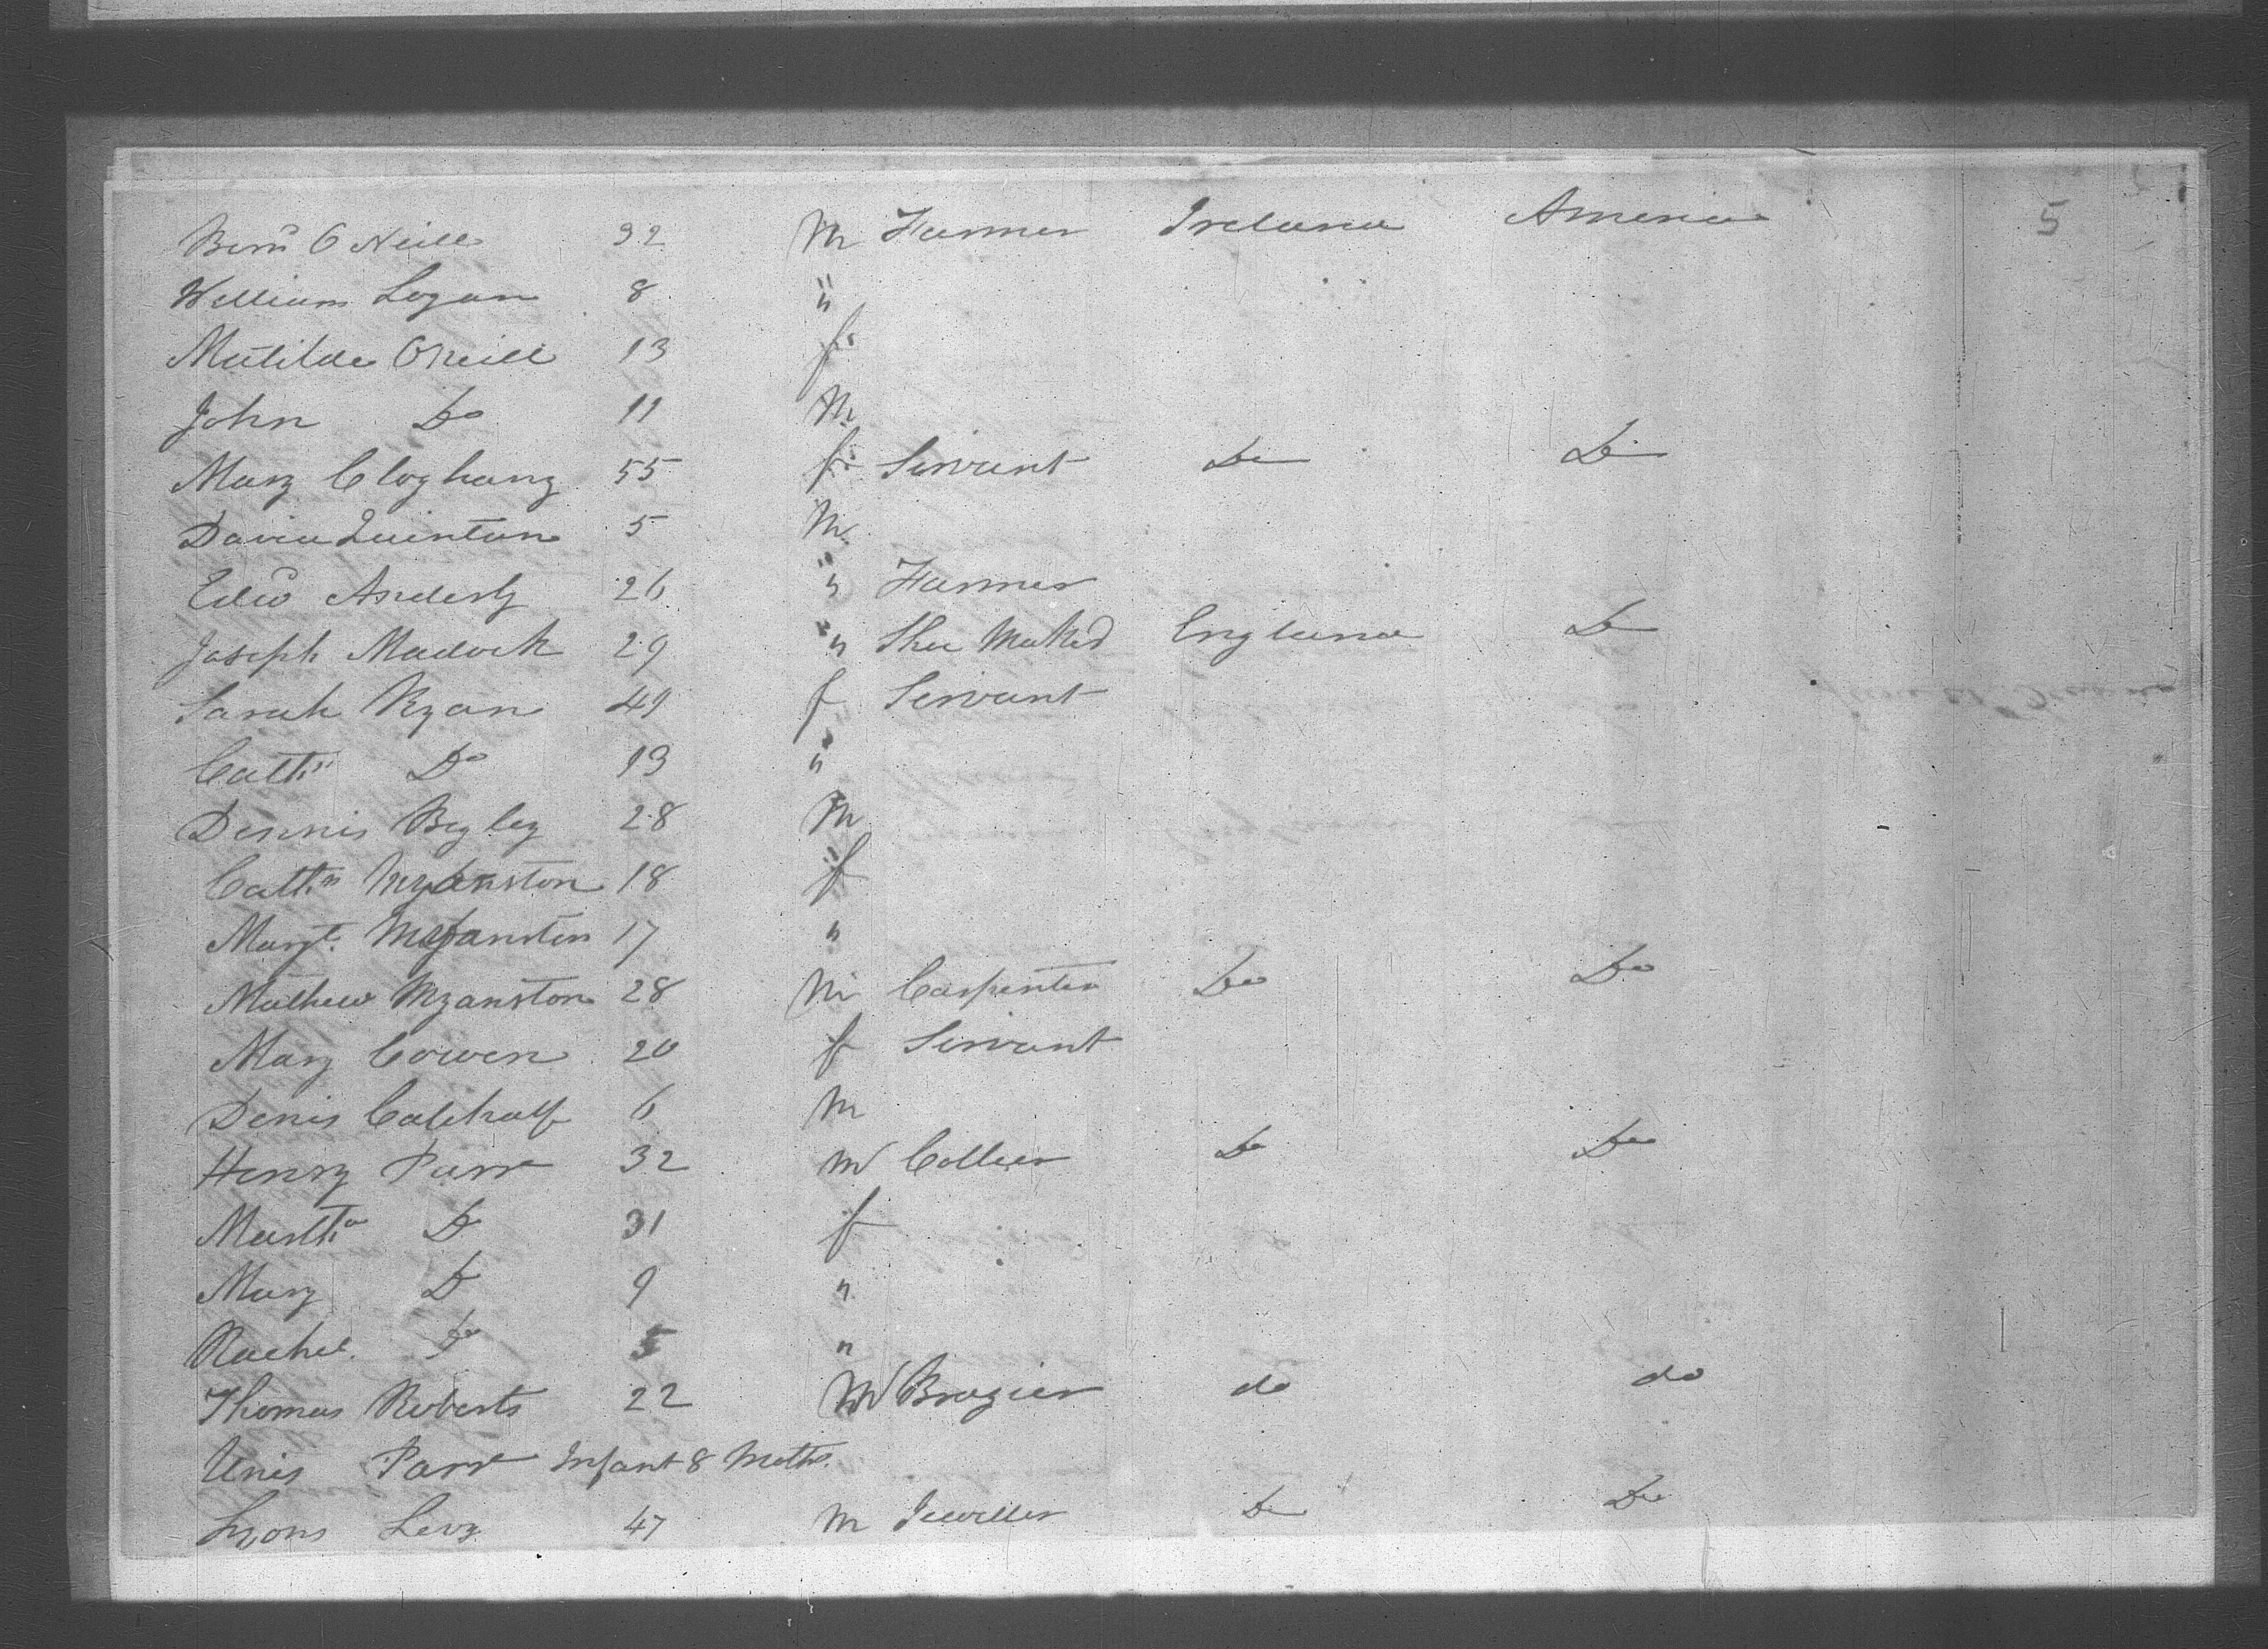 Bernd O Neill 32 M Farmer Ireland America 5
William Logan 8 "
Matilda ONeill 13 f
John Do 11 M
Mary Cloghany 55 f Servant Do Do
David Quintan 5 M
Edwd 26 " Farmer
Joseph Madock 29 " Shoe Maker England Do
Sarah Ryan 49 f Servant
Cathn Do 13 "
Dennis Begley 28 M
Cathn 18 f
Margt 17 "
Mathew Myanston 28 M Carpenter Do Do
Mary Cowen 20 f Servant
Denis 6 M
Henry Parr 32 M Collier Do Do
Martha Do 31 f
Mary Do 9 "
Rachel Do 5 "
Thomas Roberts 22 M Brazier do do
Unis Parr Infant 8 Moths
Lyons Levy 47 M Jeweller Do Do